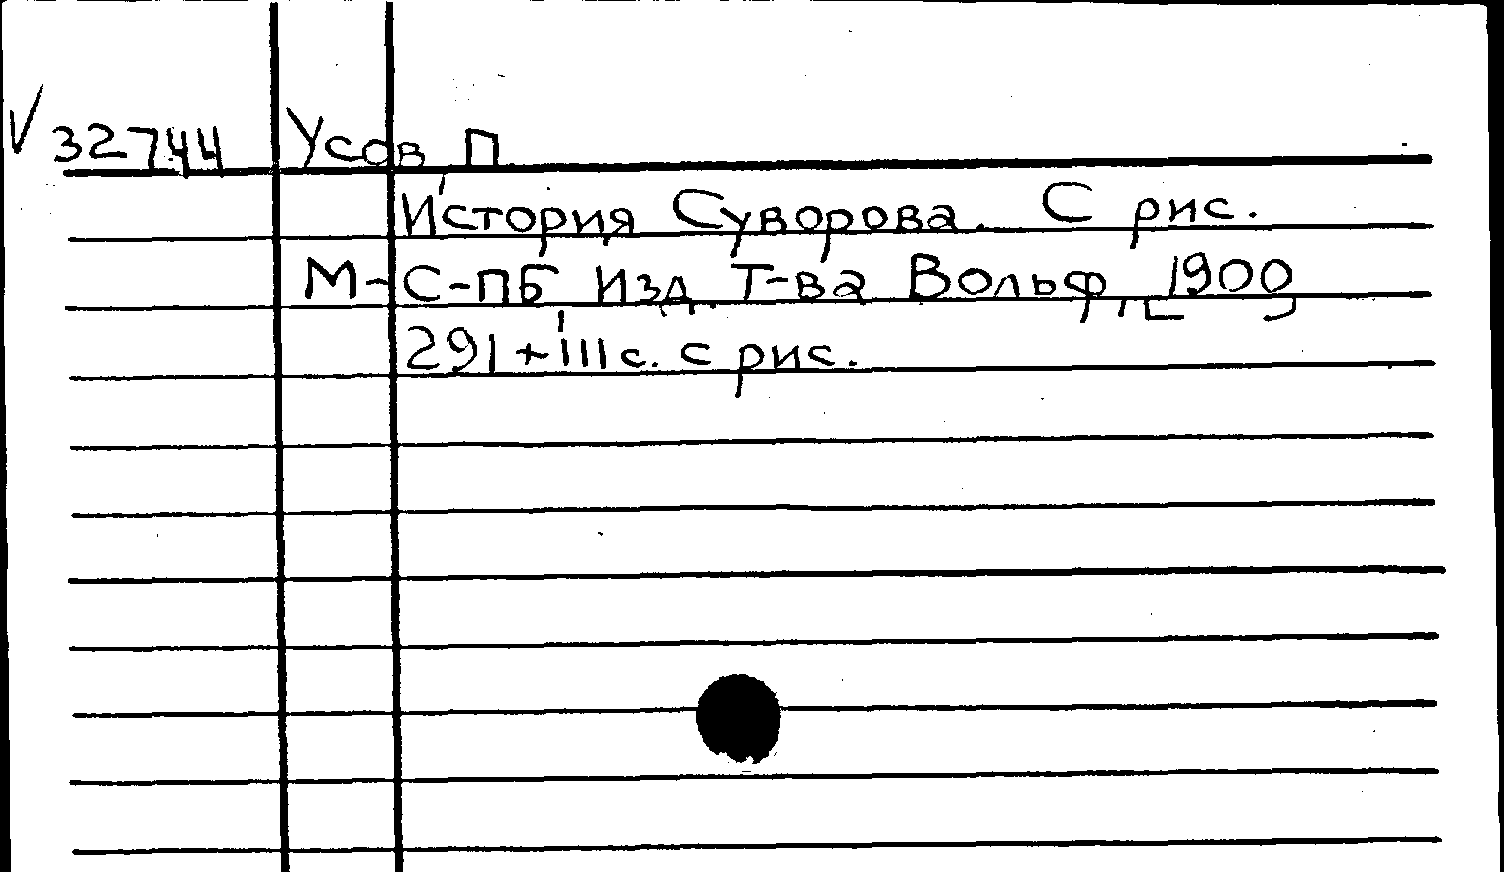 V 32744 Усов П.
История Суворова. С рис.
М-С-ПБ Изд. Т-ва Вольф, [1900]
291+III с. с рис.